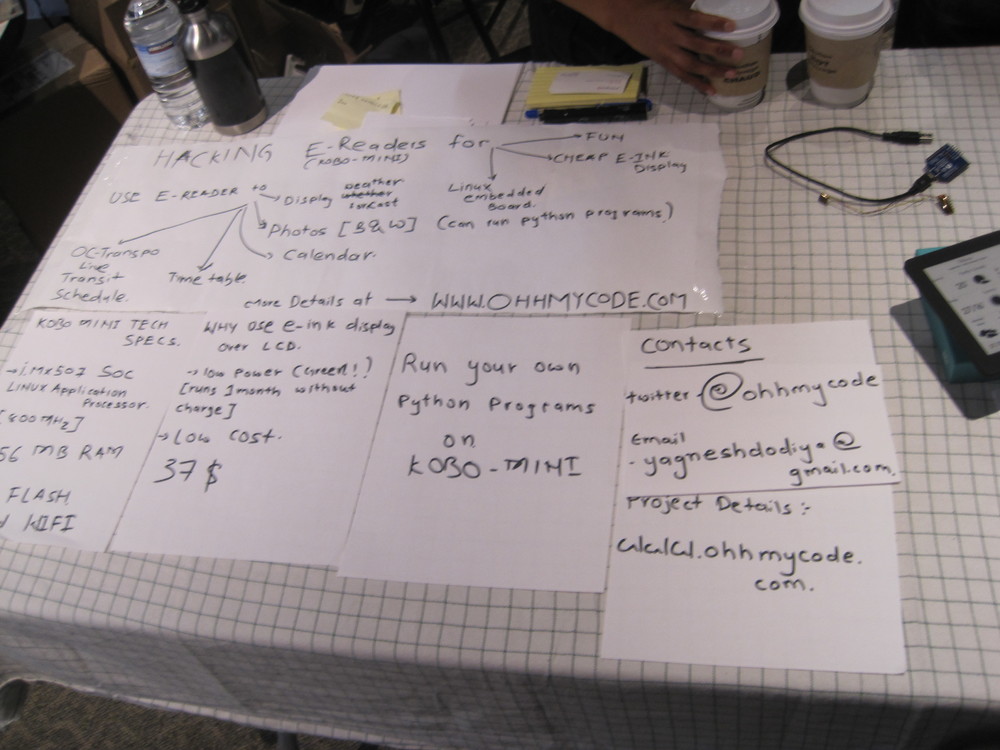 HACKING E-Readers for → FUN
(KOBO-MINI)
→ CHEAP E-INK
Display
Linux
embedded
Board.
(can run python programs)
USE E-READER to
→ Display weather
whether
forcast
Photos [B&W]
Calendar.
Time table.
OC-Transpo
Live
Transit
Schedule.
more Details at → WWW.OHHMYCODE.COM
KOBO MINI TECH
SPECS.
→ i.MX507 SoC
LINUX Application
Processor.
[800 MHz]
56 MB RAM
FLASH
WIFI
WHY USE e-ink display
over LCD.
→ low power (Green!!)
[runs 1 month without
charge]
→ LOW COST.
37$
Run your own
Python Programs
on
KOBO-MINI
Contacts
twitter - @ohhmycode
Email
- yagneshdodiya@
gmail.com.
Project Details :-
www.ohhmycode.
com.